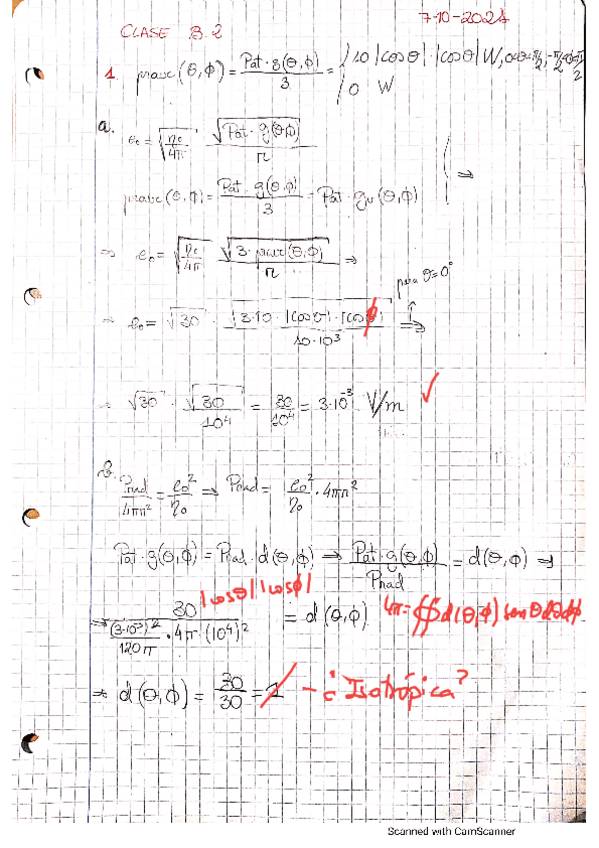 7-10-2024
CLASE B.2
1. pravc(θ,ϕ) = Pat·g(θ,ϕ)/3 = { 10 |cosθ|·|cosϕ| W, 0<θ<π/2, -π/2<ϕ<π/2
0 W
a.
e₀ = √(η₀/4π) √(Pat·g(θ,ϕ))/r
pravc(θ,ϕ) = Pat·g(θ,ϕ)/3 = Pat·gv(θ,ϕ) ⇒
⇒ e₀ = √(η₀/4π) √(3·pravc(θ,ϕ))/r ⇒
para θ=0°
⇒ e₀ = √30 · √(3·10·|cosθ|·|cosϕ|)/10·10³ ⇒
√30 · √30/10⁴ = 30/10⁴ = 3·10⁻³ V/m ✓
b.
Prad/4πr² = e₀²/η₀ ⇒ Prad = e₀²/η₀ · 4πr²
Pat·g(θ,ϕ) = Prad·d(θ,ϕ) ⇒ Pat·g(θ,ϕ)/Prad = d(θ,ϕ) ⇒
⇒ 30 |cosθ||cosϕ| / ((3·10⁻³)²/120π · 4π·(10⁴)²) = d(θ,ϕ) 4π = ∯ d(θ,ϕ) senθdθdϕ
⇒ d(θ,ϕ) = 30/30 = 1 - ¿Isotrópica?
Scanned with CamScanner